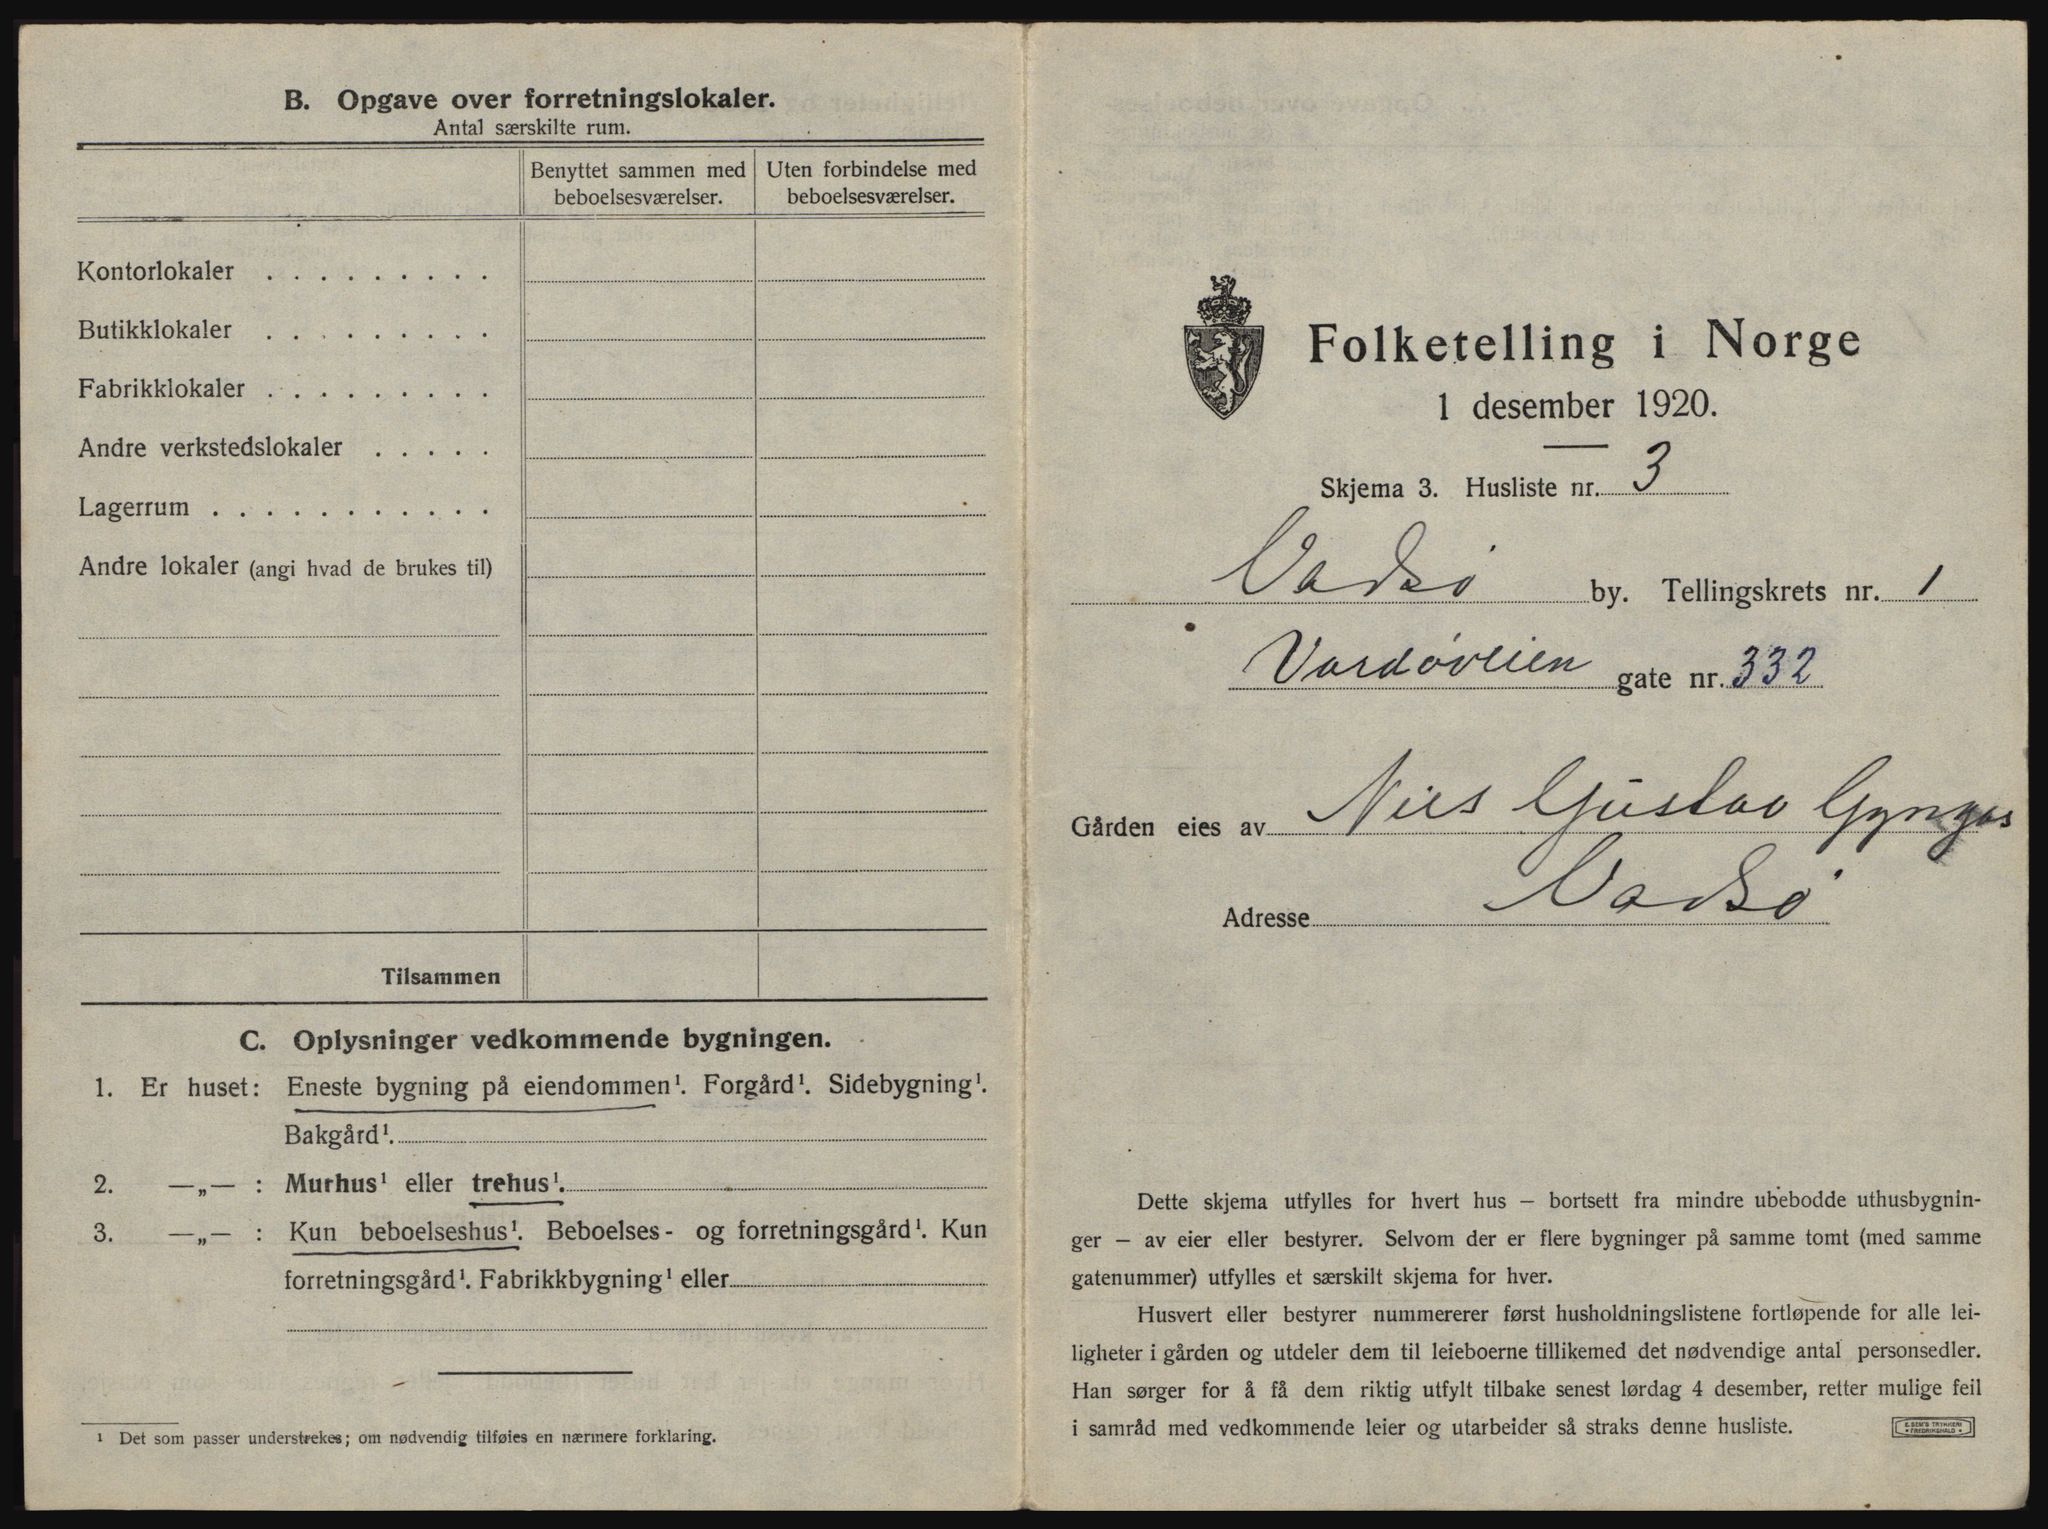 B. Opgave over forretningslokaler.
Antal særskilte rum.
Benyttet sammen med beboelsesværelser.
Uten forbindelse med beboelsesværelser.
Kontorlokaler . . . . . . . . .
Butikklokaler . . . . . . . . .
Fabrikklokaler . . . . . . . . .
Andre verkstedslokaler . . . . .
Lagerrum . . . . . . . . . . .
Andre lokaler (angi hvad de brukes til)
Tilsammen
C. Oplysninger vedkommende bygningen.
1. Er huset: Eneste bygning på eiendommen¹. Forgård¹. Sidebygning¹.
Bakgård¹.
2. —„— : Murhus¹ eller trehus¹.
3. —„— : Kun beboelseshus¹. Beboelses- og forretningsgård¹. Kun
forretningsgård¹. Fabrikkbygning¹ eller
¹ Det som passer understrekes; om nødvendig tilføies en nærmere forklaring.
Folketelling i Norge
1 desember 1920.
Skjema 3. Husliste nr. 3
Vadsø by. Tellingskrets nr. 1
Vardøveien gate nr. 332
Gården eies av Nils Gustav Gyngas
Adresse Vadsø
Dette skjema utfylles for hvert hus – bortsett fra mindre ubebodde uthusbygnin-
ger – av eier eller bestyrer. Selvom der er flere bygninger på samme tomt (med samme
gatenummer) utfylles et særskilt skjema for hver.
Husvert eller bestyrer nummererer først husholdningslistene fortløpende for alle lei-
ligheter i gården og utdeler dem til leieboerne tillikemed det nødvendige antal personsedler.
Han sørger for å få dem riktig utfylt tilbake senest lørdag 4 desember, retter mulige feil
i samråd med vedkommende leier og utarbeider så straks denne husliste.
E. SEM'S TRYKKERI
• FREDRIKSHALD •